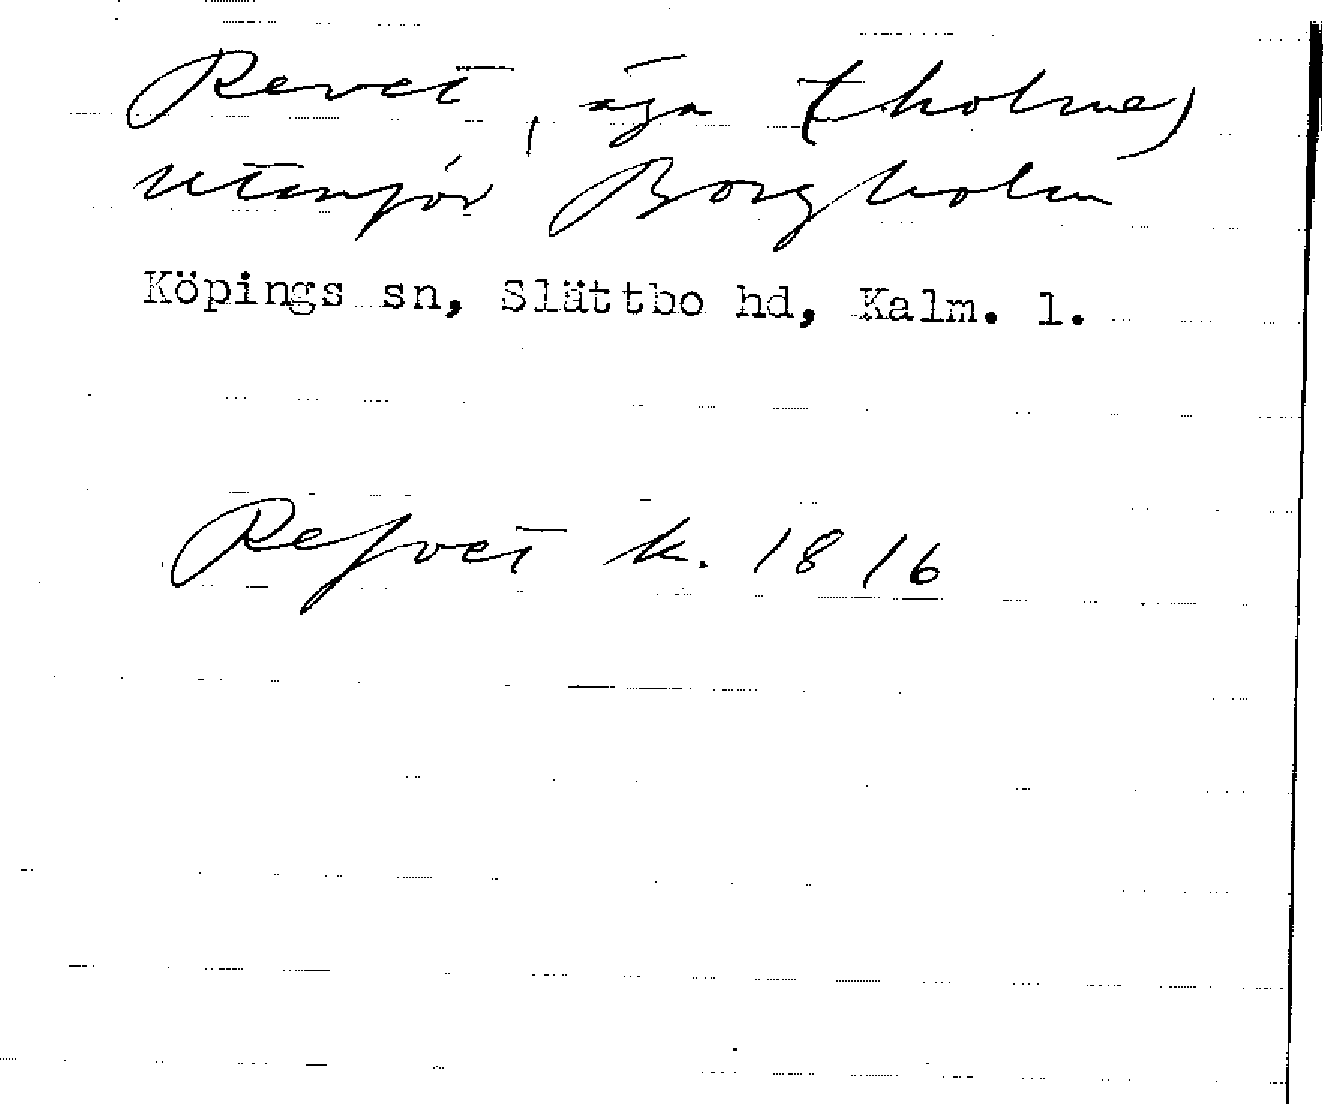 Revet, äga (holme)
utanför Borgholm
Köpings sn, Slättbo hd, Kalm. l.
Refvet k. 1816